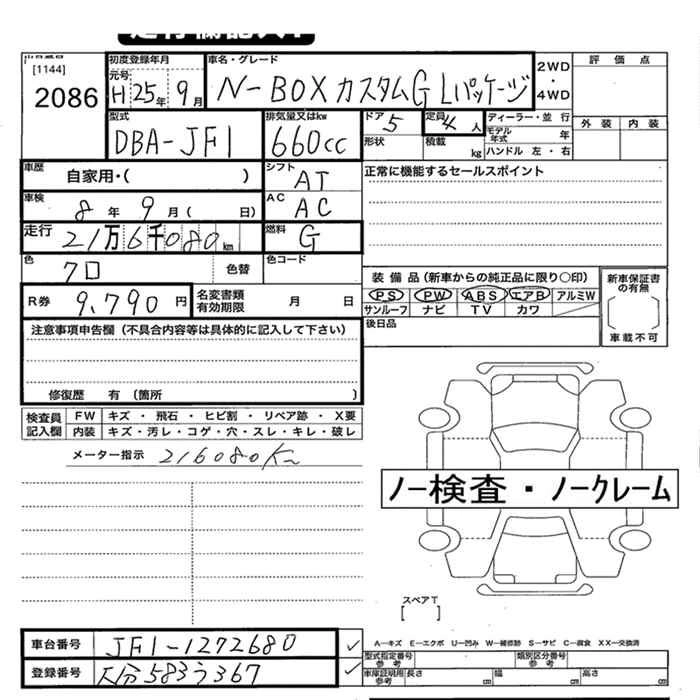 出品番号
[1144]
2086
初度登録年月
元号
H 25年 9月
車名・グレード
N-BOX カスタムG Lパッケージ
2WD
・
4WD
評価点
外装 内装
型式
DBA-JF1
排気量又はkw
660cc
ドア 5
形状
定員 4 人
積載 kg
ディーラー・並行
モデル年式 年
ハンドル 左・右
車歴
自家用・( )
シフト
AT
正常に機能するセールスポイント
車検
8年 9月 ( 日)
AC
AC
走行
21万6千080km
燃料
G
色
クロ
色替
色コード
R券 9,790 円
名変書類
有効期限
月 日
装備品(新車からの純正品に限り○印)
PS PW ABS エアB アルミW
サンルーフ ナビ TV カワ
後日品
新車保証書
の有無
車載不可
注意事項申告欄(不具合内容等は具体的に記入して下さい)
修復歴 有 (箇所 )
検査員
記入欄
FW キズ・飛石・ヒビ割・リペア跡・X要
内装 キズ・汚レ・コゲ・穴・スレ・キレ・破レ
メーター指示 216080Km
ノー検査・ノークレーム
スペアT
[ ]
車台番号 JF1-1272680
登録番号 大分583う367
A－キズ E－エクボ U－凹み W－補修跡 S－サビ C－腐食 XX－交換済
型式指定番号
参考
類別区分番号
参考
車庫証明用
参考
長さ cm 幅 cm 高さ cm